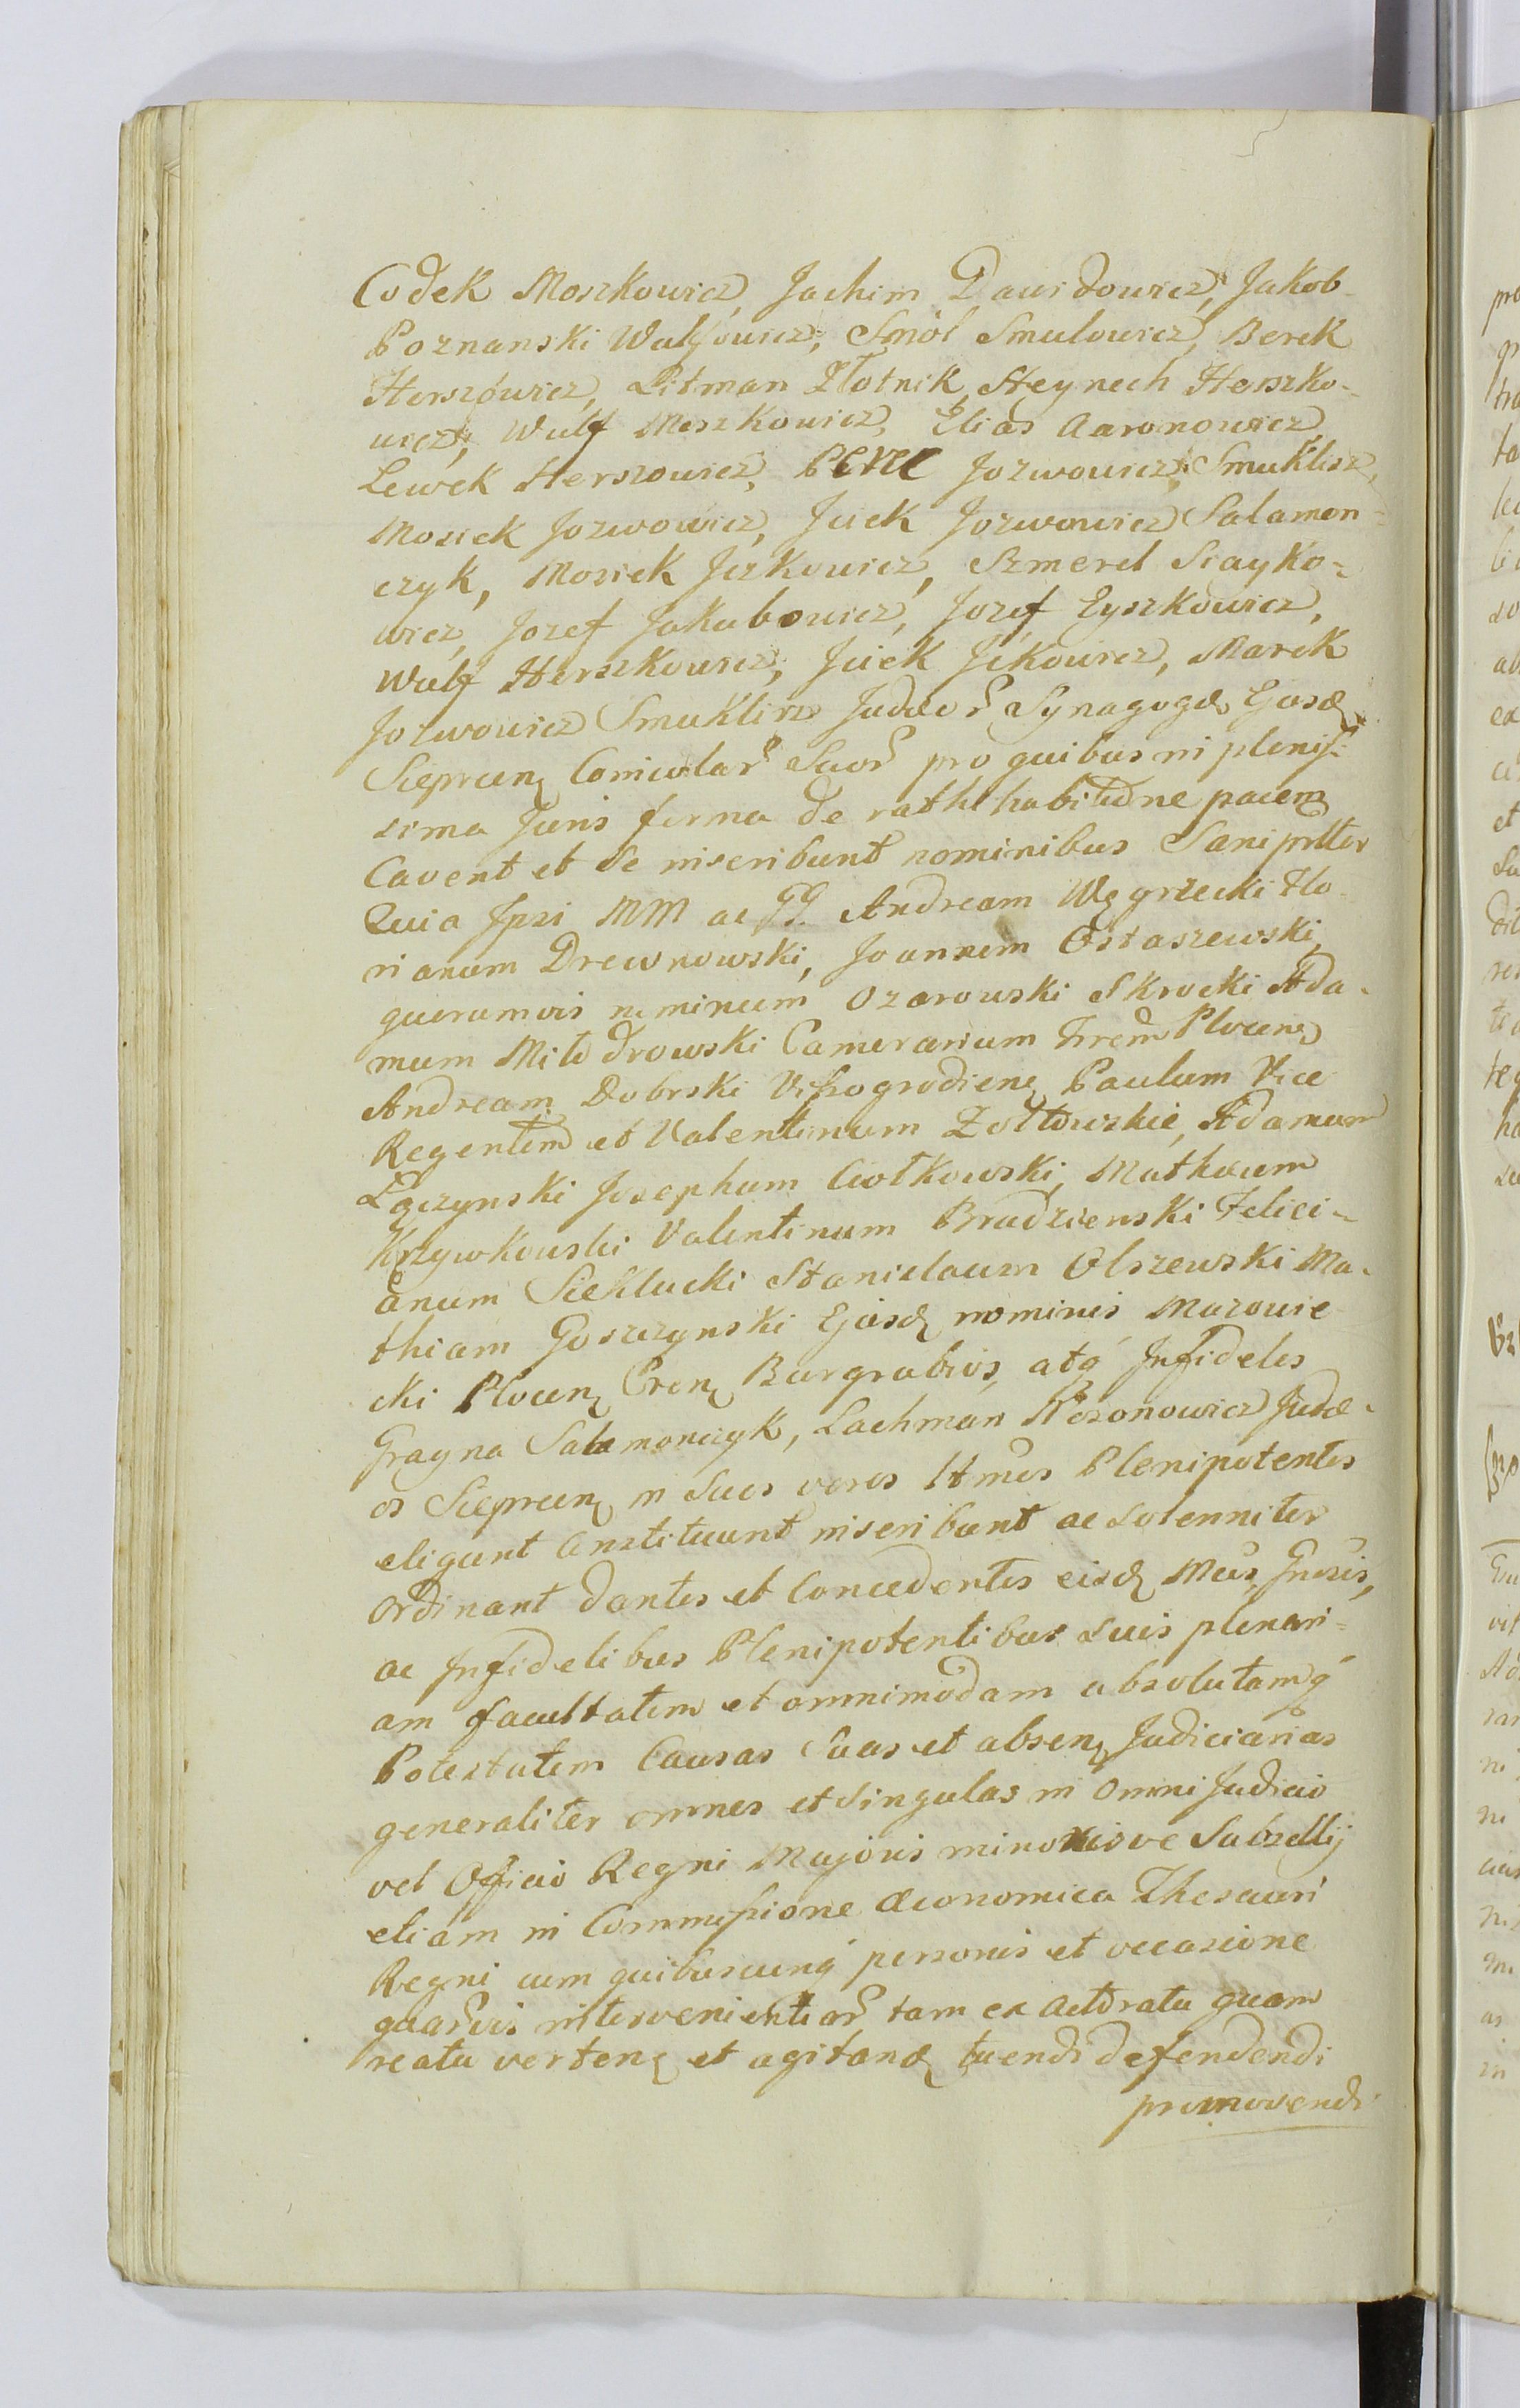 Codek Moszkowicz, Jachim Dawidowicz, Jakob
Poznanski Wulfowicz, Smól Smulowicz, Berek
Herszówicz, Litman Złotnik, Heynech Herszko-
wicz, Wulf Moszkowicz, Elias Aaronowicz
Lewek Herszowicz, Jozwowicz, Smuklisz,
Mosiek Jozwowicz, Jciek Jozwowicz Salamon=
czyk, Mosiek Jczkowicz, Szmerel Siayko=
wicz, Jozef Jakubowicz, Jozef Łyszkowicz,
Wulf Herszkowicz, Jciek Jckowicz, Marek
Jozwowicz Smuklirz Judæor Synagogæ Ejusd
Sieprcen Conicular Suor pro quibus in plenis-
sima Juris forma de rathihabitidne pacem
Cavent et se inscribunt nominibus Sani prtter
Quia Jpsi MM ac GG. Andream Węgrzecki Flo-
rianum Drewnowski, Joannem Ostaszewski,
quorumvis nominum Ozarowski Skrocki Ada-
mum Mito drowski Camerarium Trrem Plocen
Andream Dobrski Viszogrodien Paulum Vice
Regentem et Valentinum Zołtowskie, Adamum
Łączynski Josephum Ciołkowski, Mathæum
Krzywkowski Valentinum Bradzienski Felici-
anum Sieklucki Stanislaum Olszewski Ma-
thiam Goszczynski Ejusd nominis Mazowie
cki Plocen Cren Burgrabios, atq Jnfideles
Grayna Salamonczyk, Lachman Aronowicz Judæ-
os Sieprcen in Suos veros ltmos Plenipotentes
eligunt Constituunt inscribunt ac solenniter
Ordinant dantes et Concedentes eisd Mcis, Gnosis,
ac Jnfidelibus Plenipotentibus suis plenari=
am facultatem et omnimodam absolutamq
Potestatem Causas Suas et absen Judiciarias
generaliter omnes et singulas in omni Judicio
vel Officio Regni Majoris minorisve Subsellij
etiam in Commissione Œconomica Thesauri
Regni cum quibuscunq personis et occasione
quarvis intervenientiar tam ex actoratu quam
reatu verten et agitand tuendi defendendi
promovendi